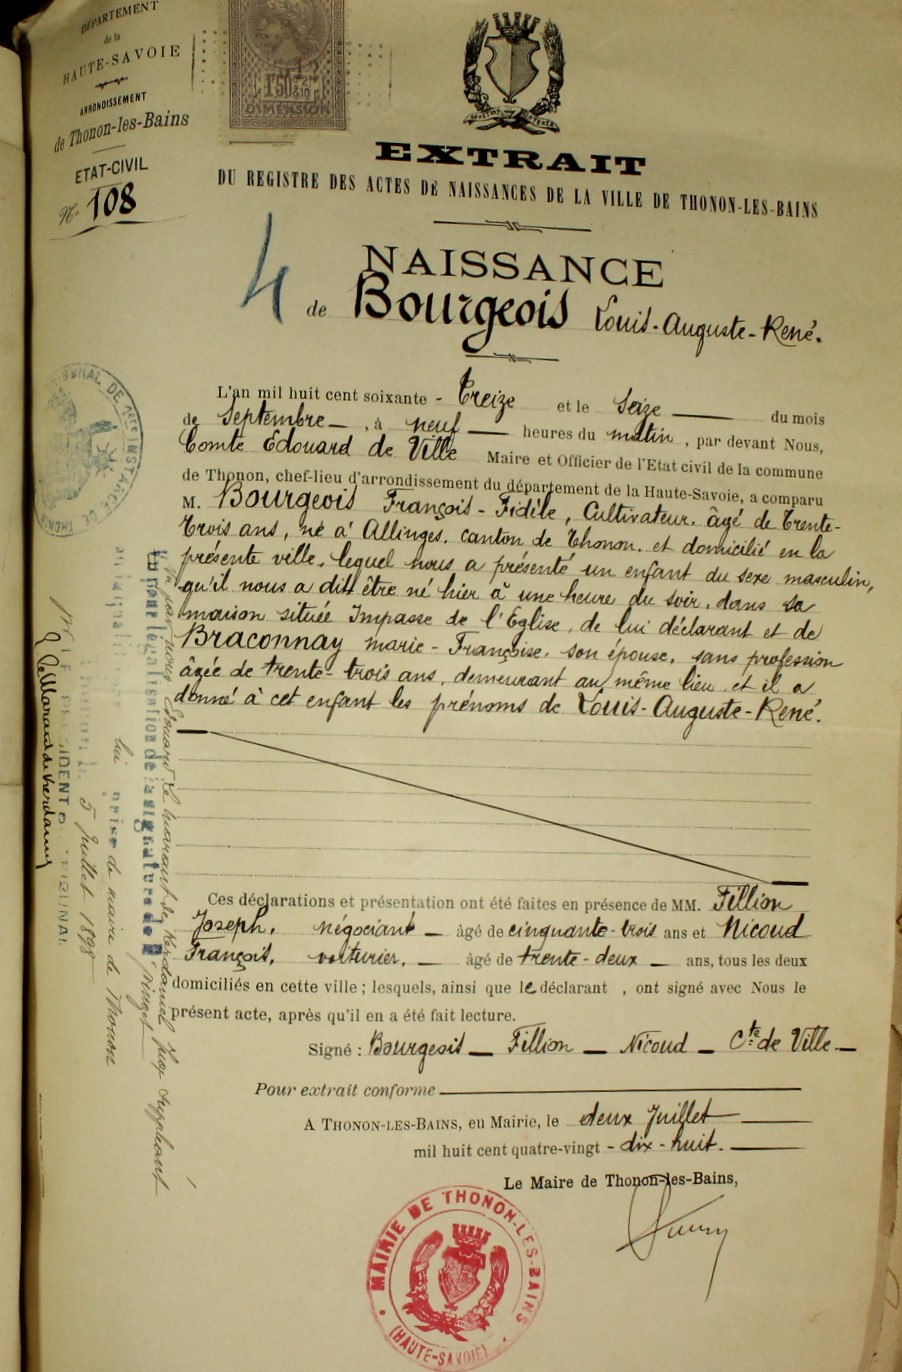 DÉPARTEMENT
de la
HAUTE-SAVOIE
ARRONDISSEMENT
de Thonon-les-Bains
ETAT-CIVIL
N° 108
1F50
DIMENSION
EXTRAIT
DU REGISTRE DES ACTES DE NAISSANCES DE LA VILLE DE THONON-LES-BAINS
4
NAISSANCE
de Bourgeois Louis-Auguste-René.
L'an mil huit cent soixante - Treize et le Seize du mois
de Septembre, à neuf heures du matin, par devant Nous,
Comte Edouard de Ville Maire et Officier de l'Etat civil de la commune
de Thonon, chef-lieu d'arrondissement du département de la Haute-Savoie, a comparu
M. Bourgeois François-Fidèle, Cultivateur, âgé de trente-
trois ans, né à Allinges, canton de Thonon, et domicilié en la
présente ville, lequel nous a présenté un enfant du sexe masculin,
qu'il nous a dit être né hier à une heure du soir, dans sa
maison située Impasse de l'Eglise, de lui déclarant et de
Braconnay marie-Françoise, son épouse, sans profession
âgée de trente-trois ans, demeurant au même lieu et il a
donné à cet enfant les prénoms de Louis-Auguste-René.
Ces déclarations et présentation ont été faites en présence de MM. Fillion
Joseph, négociant âgé de cinquante-trois ans et Nicoud
François, voiturier, âgé de trente-deux ans, tous les deux
domiciliés en cette ville; lesquels, ainsi que le déclarant, ont signé avec Nous le
présent acte, après qu'il en a été fait lecture.
Signé: Bourgeois — Fillion — Nicoud — Cte de Ville
Pour extrait conforme
A THONON-LES-BAINS, en Mairie, le deux Juillet
mil huit cent quatre-vingt-dix-huit.
Le Maire de Thonon-les-Bains,
MAIRIE DE THONON-LES-BAINS
(HAUTE-SAVOIE)
TRIBUNAL DE 1ère INSTANCE DE THONON
Vu par nous
pour légalisation de la signature de M. Pinget
maire de Thonon
5 Juillet 1898